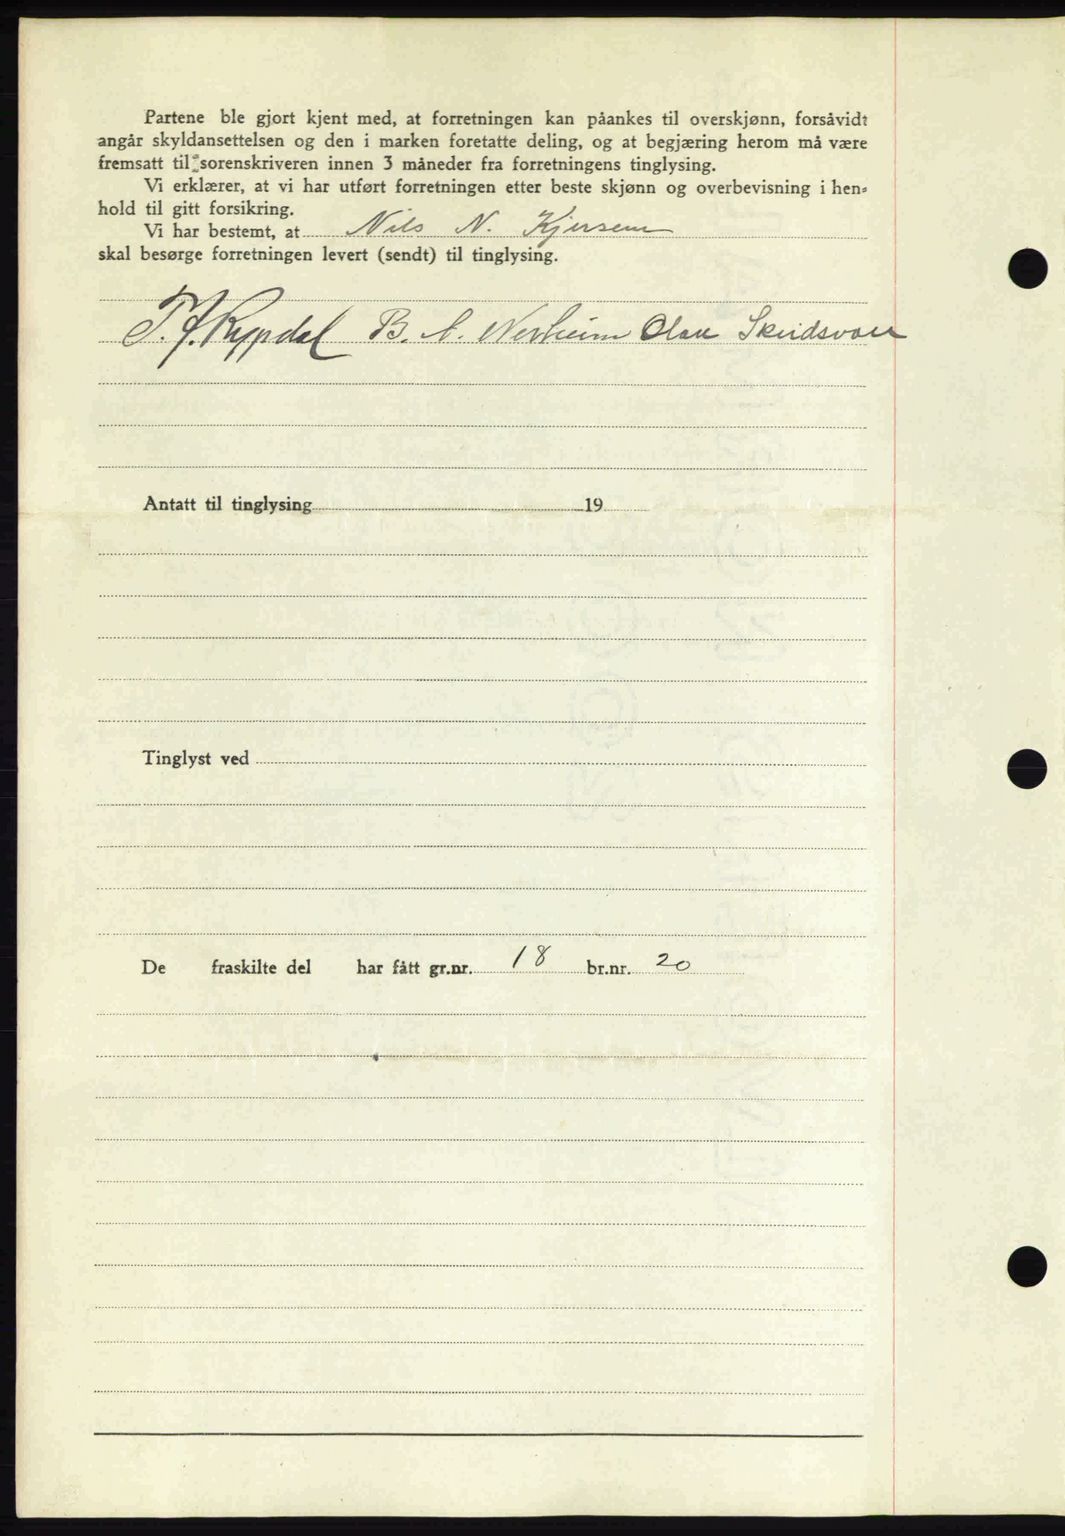 Partene ble gjort kjent med, at forretningen kan påankes til overskjønn, forsåvidt
angår skyldansettelsen og den i marken foretatte deling, og at begjæring herom må være
fremsatt til sorenskriveren innen 3 måneder fra forretningens tinglysing.
Vi erklærer, at vi har utført forretningen etter beste skjønn og overbevisning i hen-
hold til gitt forsikring.
Vi har bestemt, at Nils N. Kjersem
skal besørge forretningen levert (sendt) til tinglysing.
T. J. Rypdal B. A. Nerheim Olav Skeidsvoll
Antatt til tinglysing 19
Tinglyst ved
De fraskilte del har fått gr.nr. 18 br.nr. 20